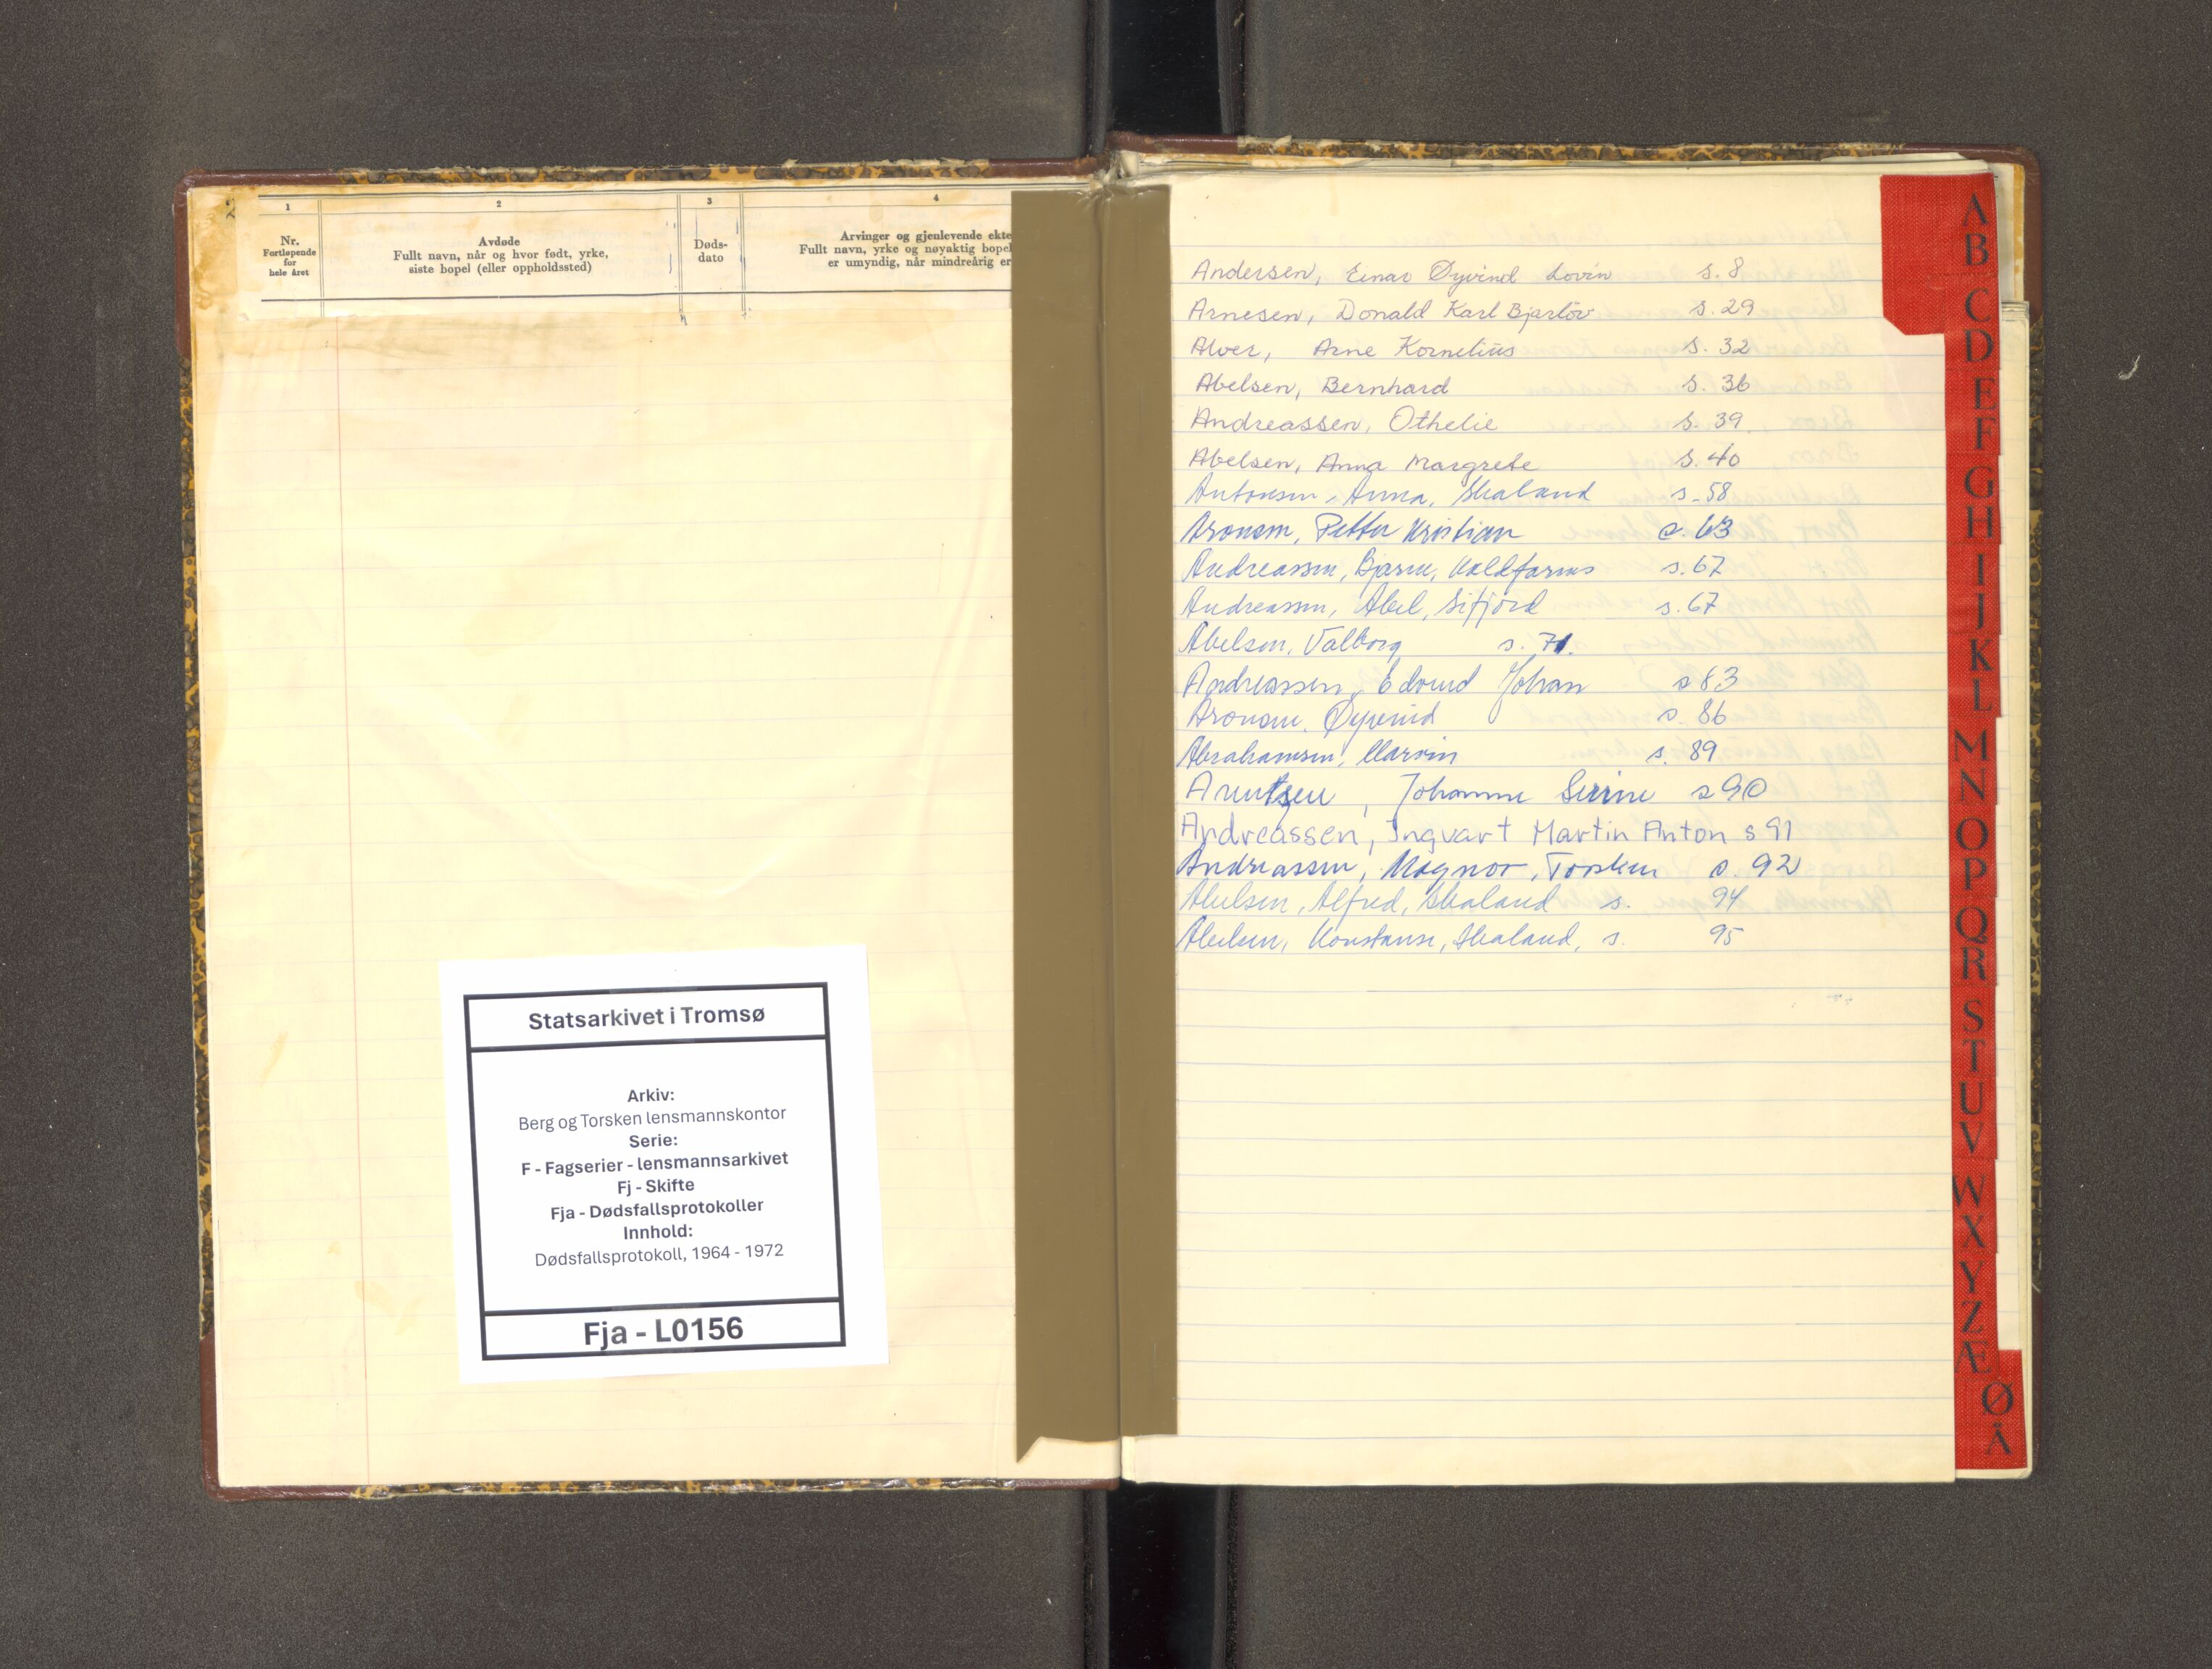 1 2 3 4
Nr. Fortløpende for hele året
Avdøde
Fullt navn, når og hvor født, yrke,
siste bopel (eller oppholdssted)
Døds-
dato
Arvinger og gjenlevende ekte
Fullt navn, yrke og nøyaktig bopel
er umyndig, når mindreårig er
Statsarkivet i Tromsø
Arkiv:
Berg og Torsken lensmannskontor
Serie:
F - Fagserier - lensmannsarkivet
Fj - Skifte
Fja - Dødsfallsprotokoller
Innhold:
Dødsfallsprotokoll, 1964 - 1972
Fja - L0156
Andersen, Einar Øyvind Lovin s. 8
Arnesen, Donald Karl Bjarløv s. 29
Alver, Arne Kornelius s. 32
Abelsen, Bernhard s. 36
Andreassen, Othelie s. 39
Abelsen, Anna Margrete s. 40
Antonsen, Anna, Skaland s. 58
Aronsen, Petter Kristian s. 63
Andreassen, Bjarne, Kaldfarnes s. 67
Andreassen, Abel, Sifjord s. 67
Abelsen, Valborg s. 71.
Andreassen, Edvind Johan s 83
Aronsen, Øyvind s. 86
Abrahamsen, Marvin s. 89
Arntzen, Johanne Sirine s 90
Andreassen, Ingvart Martin Anton s 91
Andreassen, Magnor, Torsken s. 92
Abelsen, Alfred, Skaland s. 94
Abelsen, Konstanse, Skaland, s. 95
A
B
C
D
E
F
G
H
I
J
K
L
M
N
O
P
Q
R
S
T
U
V
W
X
Y
Z
Æ
Ø
Å